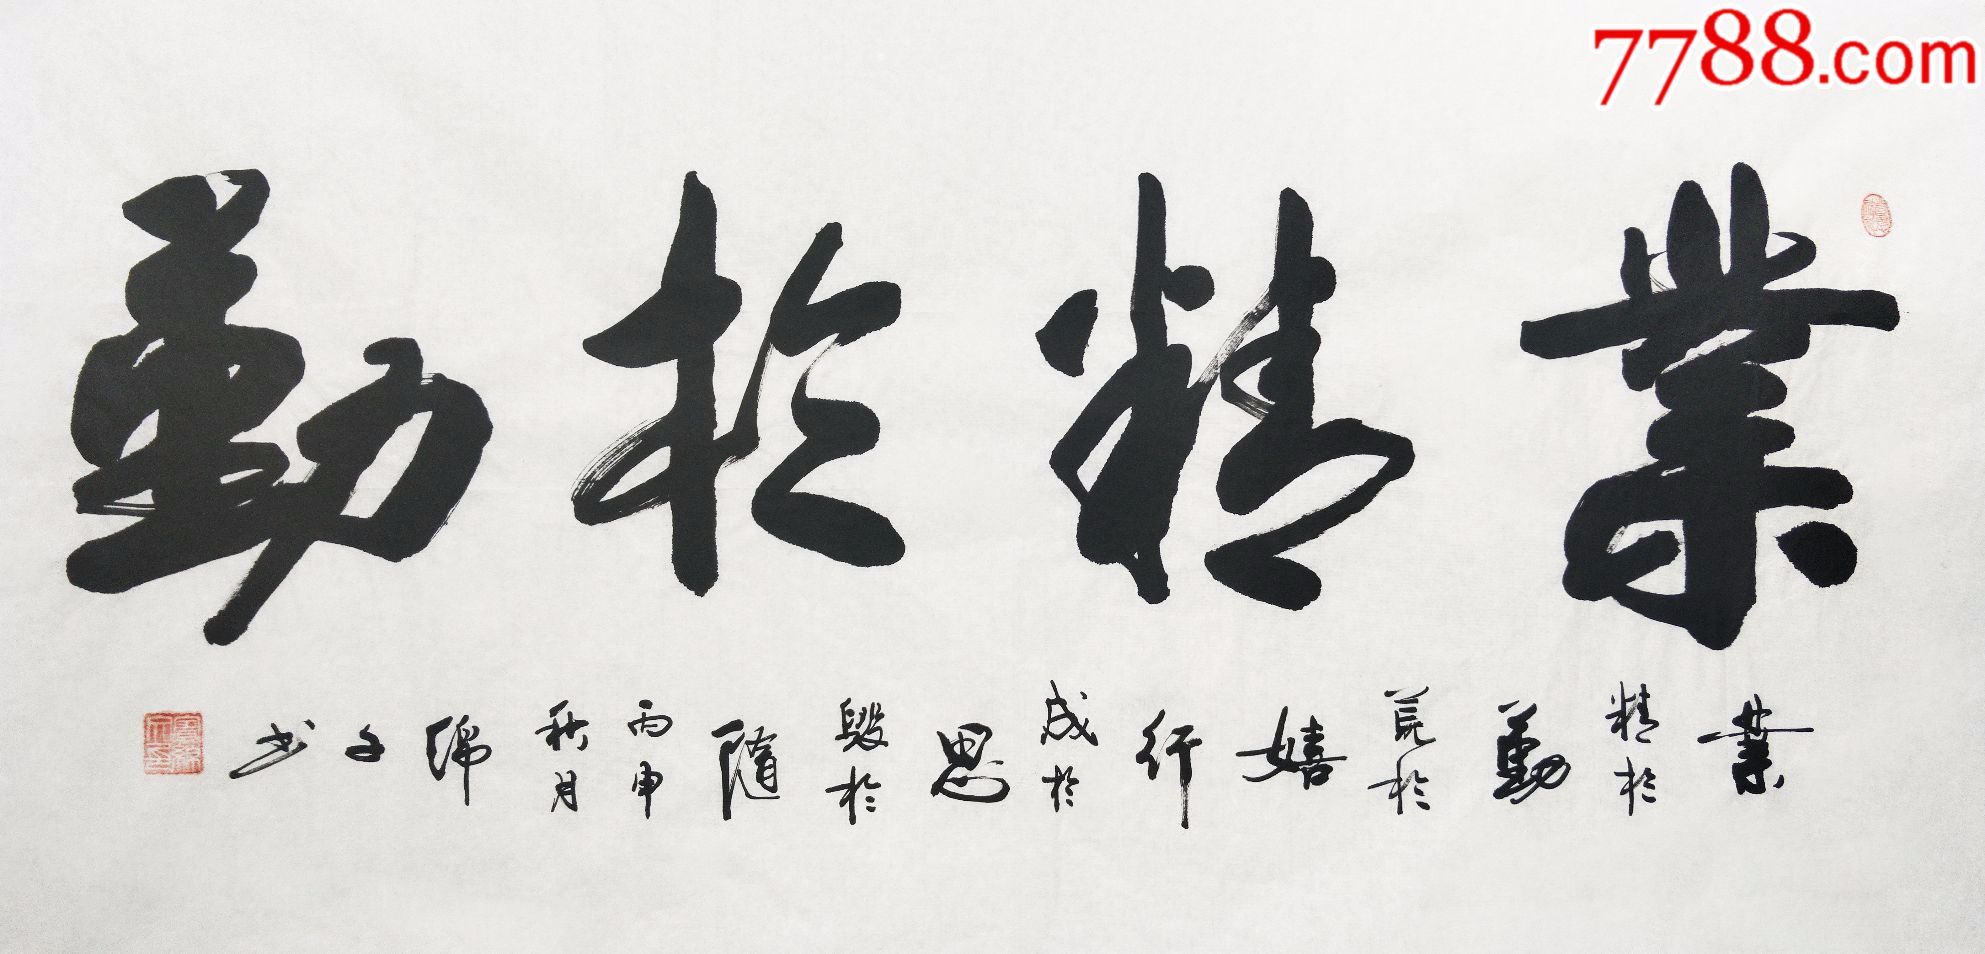 7788.com
業精於勤
業精於勤荒於嬉行成於思毀於隨丙申秋月
書